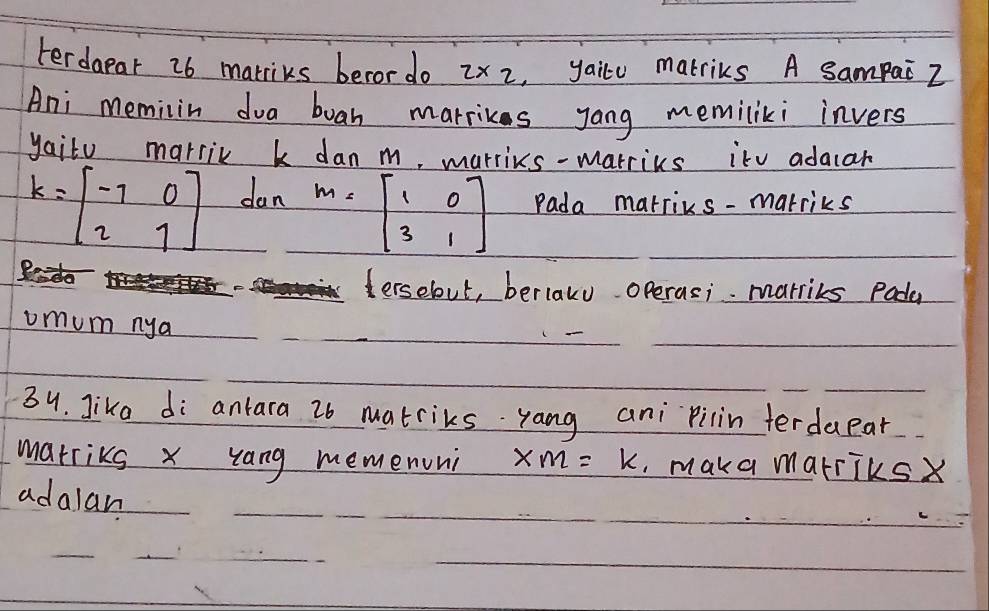 terdapat 26 matriks berordo 2x2, yaitu matriks A sampai Z
Ani memilih dua buah matrikas yang memiliki invers
yaitu matrik k dan m. matriks-matriks itu adalah
k = [-1 0 2 1] dan m = [1 0 3 1] pada matriks-matriks
tersebut, berlaku operasi matriks pada
umum nya
34. Jika di antara 26 matriks yang ani pilih terdapat
matriks x yang memenuhi xm = k, maka matriks x
adalah